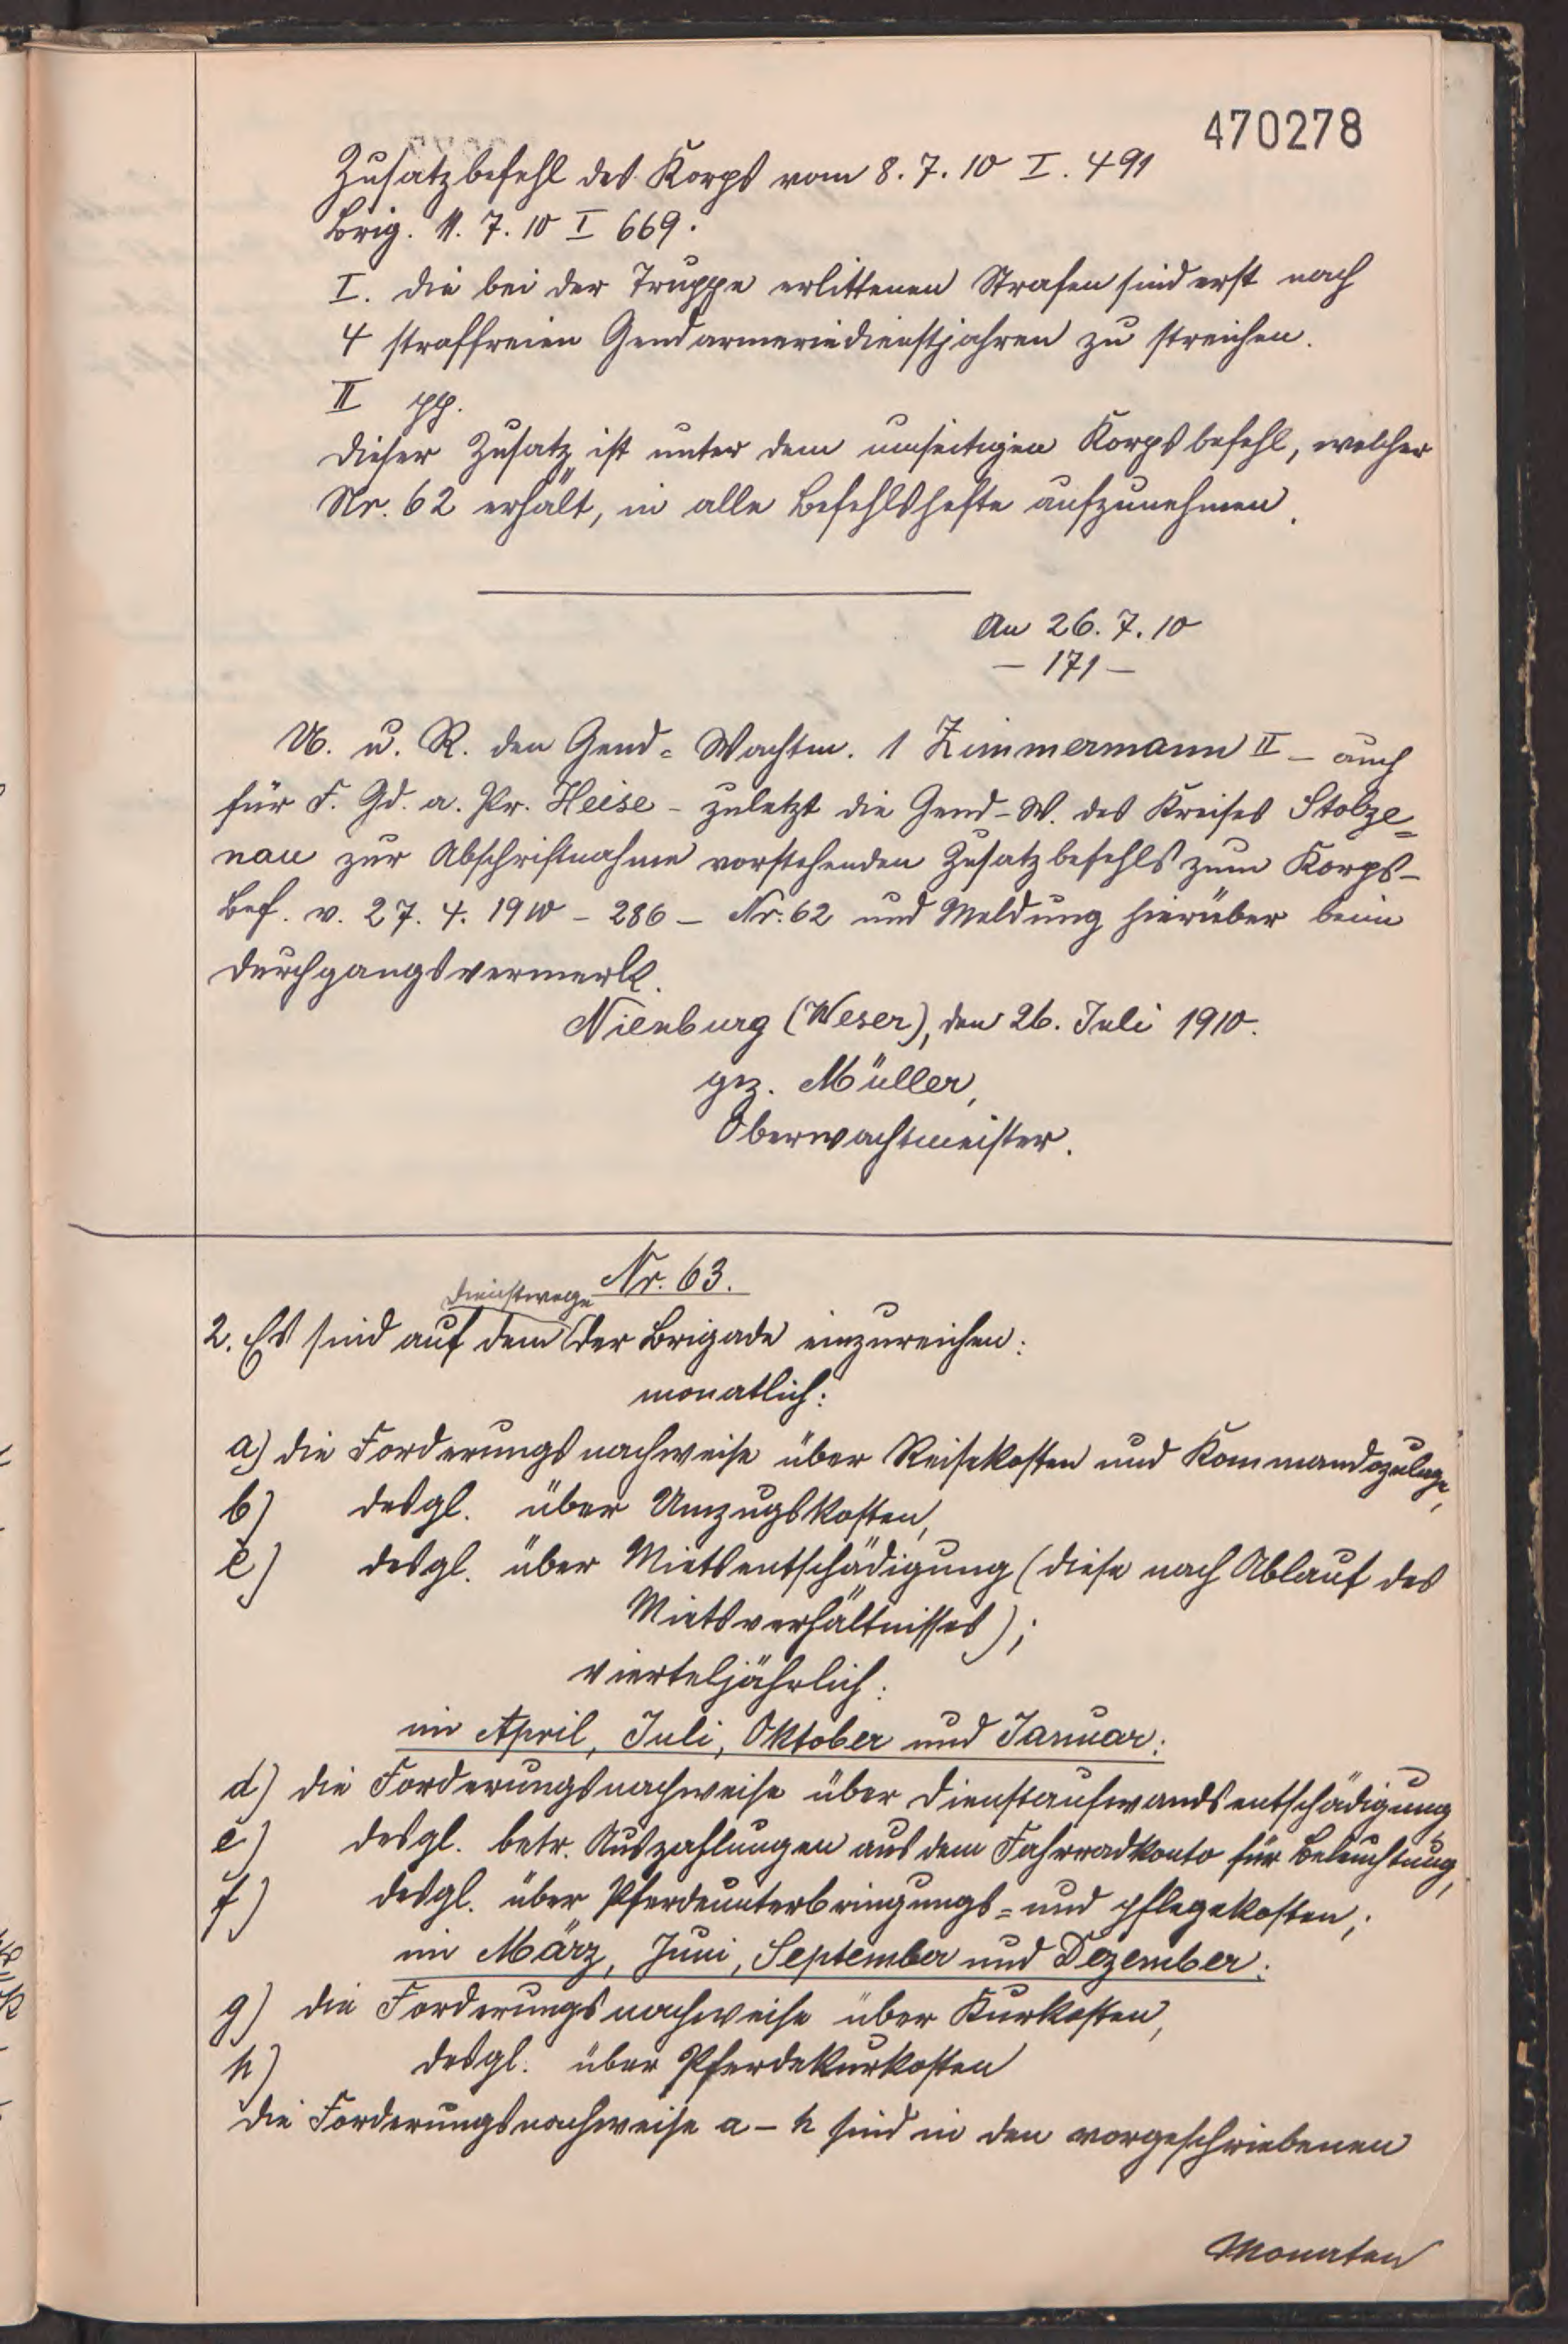 470278
Zusatzbefehl des Korps vom 8. 7. 10 I. 491
Brig. 11. 7. 10 I 669.
I. Die bei der Truppe erlittenen Strafen sind erst nach
4 straffreien Gendarmeriedienstjahren zu streichen.
II pp.
Dieser Zusatz ist unter dem umseitigen Korpsbefehl, welcher
Nr. 62 erhält, in alle Befehlshefte aufzunehmen.
An 26. 7. 10
- 171 -
U. u. R. den Gend= Wachtm. 1 Zimmermann II - auch
für F. Gd. a. Pr. Heise - zuletzt die Gend-W. des Kreises Stolze=
nau zur Abschriftnahme vorstehenden Zusatzbefehls zum Korps-
Bef. v. 27. 4. 1910 - 286 - Nr. 62 und Meldung hierüber beim
Durchgangsvermerk.
Nienburg (Weser), den 26. Juli 1910.
gez. Müller,
Oberwachtmeister.
Nr. 63.
Dienstwege
2. Es sind auf dem der Brigade einzureichen:
monatlich:
a) die Forderungsnachweise über Reisekosten und Kommandozulage,
b) desgl. über Umzugskosten,
c) desgl. über Mietsentschädigung (diese nach Ablauf des
Mietsverhältnisses);
vierteljährlich:
im April, Juli, Oktober und Januar:
d) die Forderungsnachweise über Dienstaufwandsentschädigung
e) desgl. betr. Auszahlungen aus dem Fahrradkonto für Beleuchtung,
f) desgl. über Pferdeunterbringungs= und pflegekosten;
im März, Juni, September und Dezember:
g) die Forderungsnachweise über Kurkosten,
h) desgl. über Pferdekurkosten
Die Forderungsnachweise a - h sind in den vorgeschriebenen
Monaten